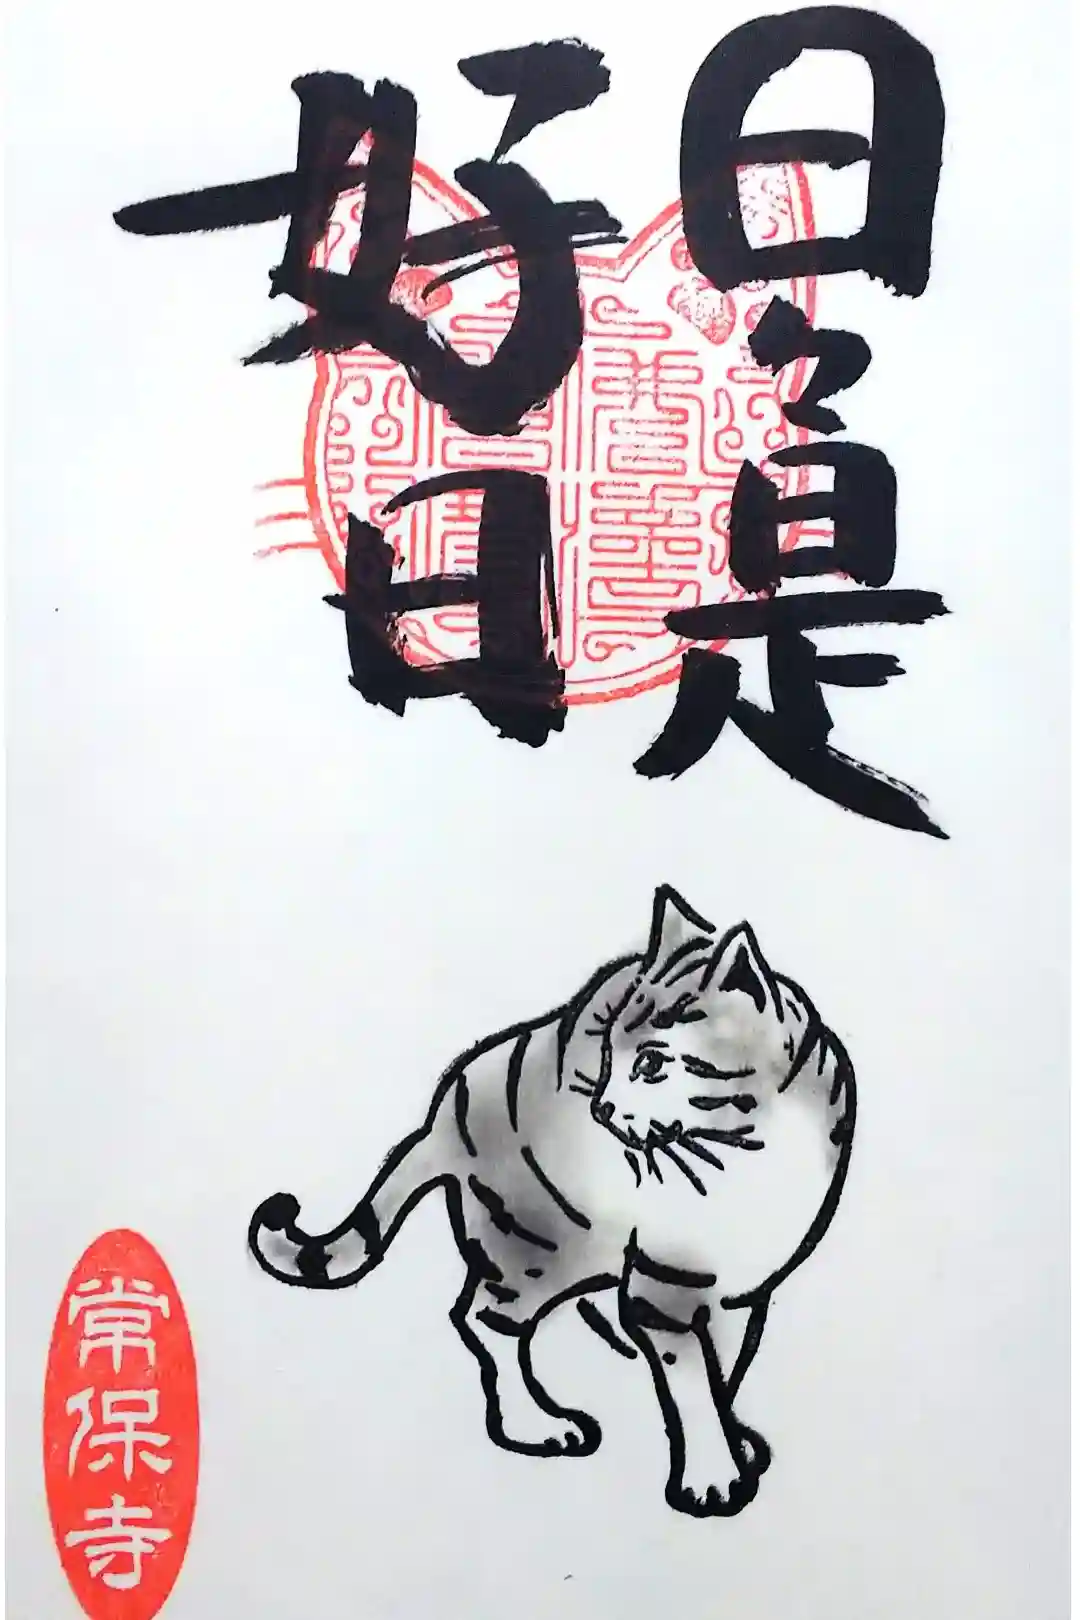 日々是
好日
常保寺